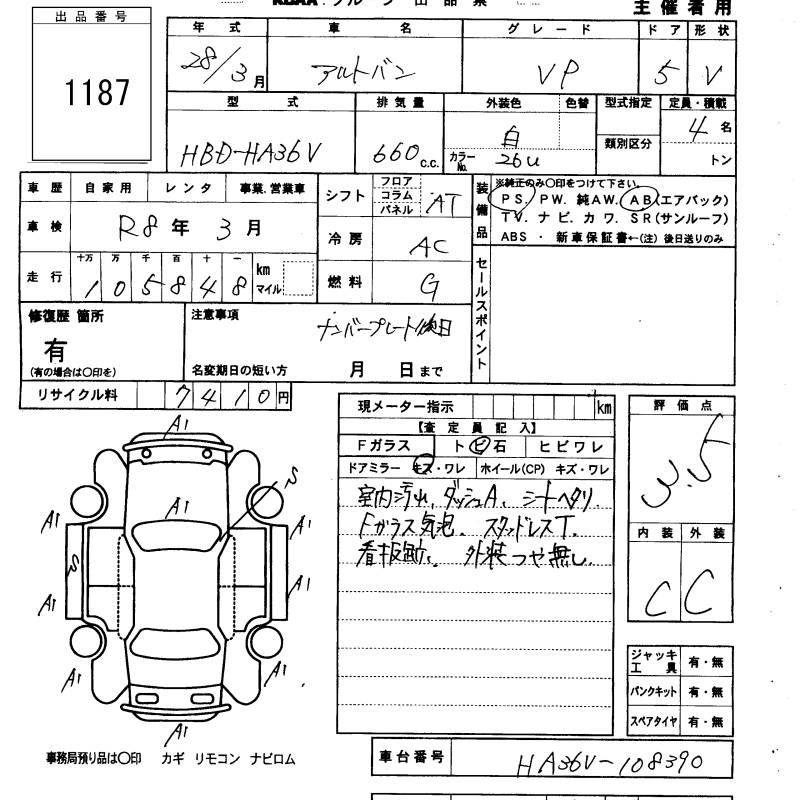 主催者用
出品番号
1187
年式 車名 グレード ドア 形状
28/3月 アルトバン VP 5 V
型式 排気量 外装色 色替 型式指定 定員・積載
HBD-HA36V 660c.c. 白 類別区分 4名
カラーNo. 26U トン
車歴 自家用 レンタ 事業.営業車
シフト フロア コラム パネル AT
車検 R8年 3月
冷房 AC
走行 十万 万 千 百 十 一 km マイル
105848
燃料 G
装備品 ※純正のみ〇印をつけて下さい。
PS. PW. 純AW. AB(エアバック)
TV. ナビ. カワ. SR(サンルーフ)
ABS ・ 新車保証書←(注)後日送りのみ
セールスポイント
修復歴 箇所
有
(有の場合は〇印を)
注意事項
ナンバープレート後日
名変期日の短い方 月 日まで
リサイクル料 7410円
現メーター指示 km
【査定員記入】
Fガラス ト ビ 石 ヒビワレ
ドアミラー キズ・ワレ ホイール(CP) キズ・ワレ
室内汚れ. ダッシュA. シートヘタリ.
Fガラス気泡. スタッドレスT.
外装つや無し.
評価点
3.5
内装 外装
C C
A1
S
A1
A1 A1
S
A1 A1
A1 A1
A1
ジャッキ工具 有・無
パンクキット 有・無
スペアタイヤ 有・無
事務局預り品は〇印 カギ リモコン ナビロム
車台番号 HA36V-108390